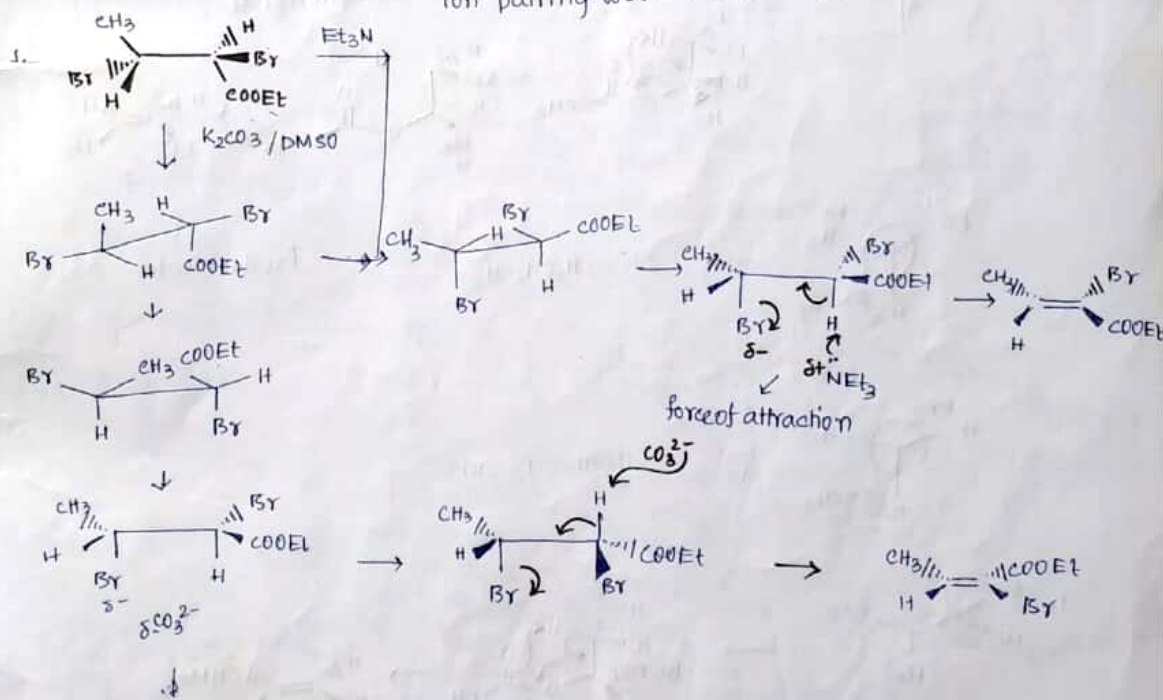 ion pairing
1.
CH3
H
Br
Br
H
COOEt
Et3N
K2CO3/DMSO
CH3
H
Br
Br
H
COOEt
CH3
Br
H
COOEt
Br
H
CH3
H
Br
COOEt
Br
δ-
H
δ+ NEt3
force of attraction
CH3
H
Br
COOEt
Br
CH3
COOEt
H
H
Br
CH3
H
Br
COOEt
Br
δ-
H
δ-CO3 2-
CO3 2-
H
CH3
H
COOEt
Br
Br
CH3
H
COOEt
Br